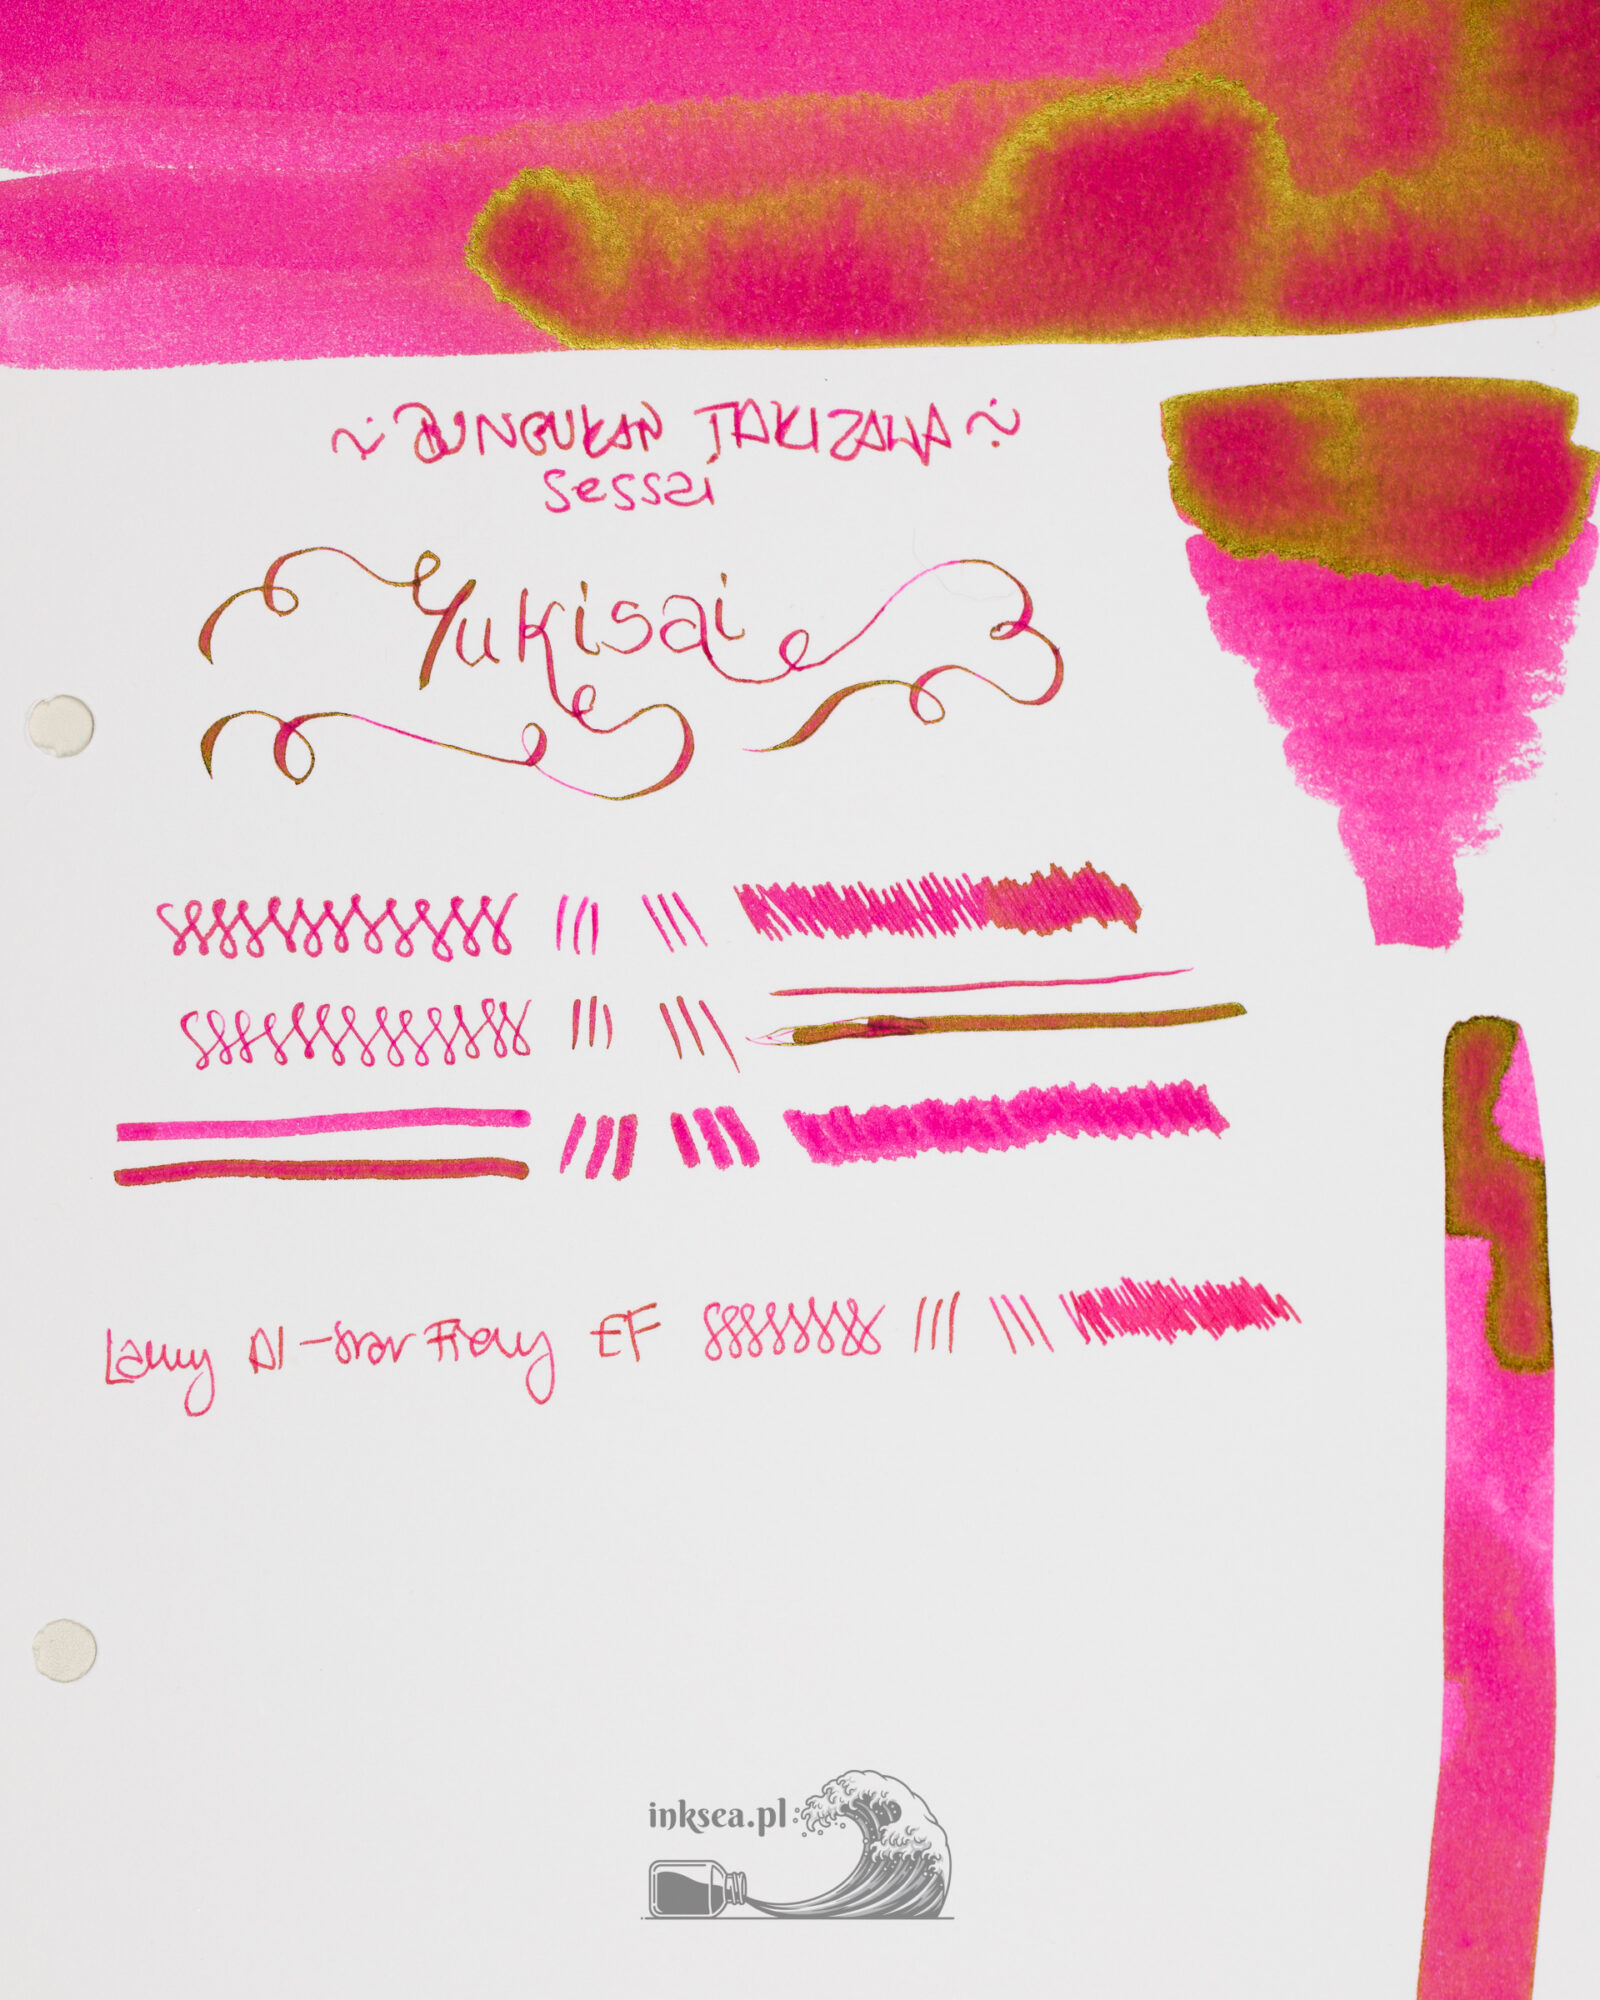 ~ BUNGUKAN TAKIZAWA ~
Sessai
Yukisai
Lamy Al-star Fiery EF
inksea.pl